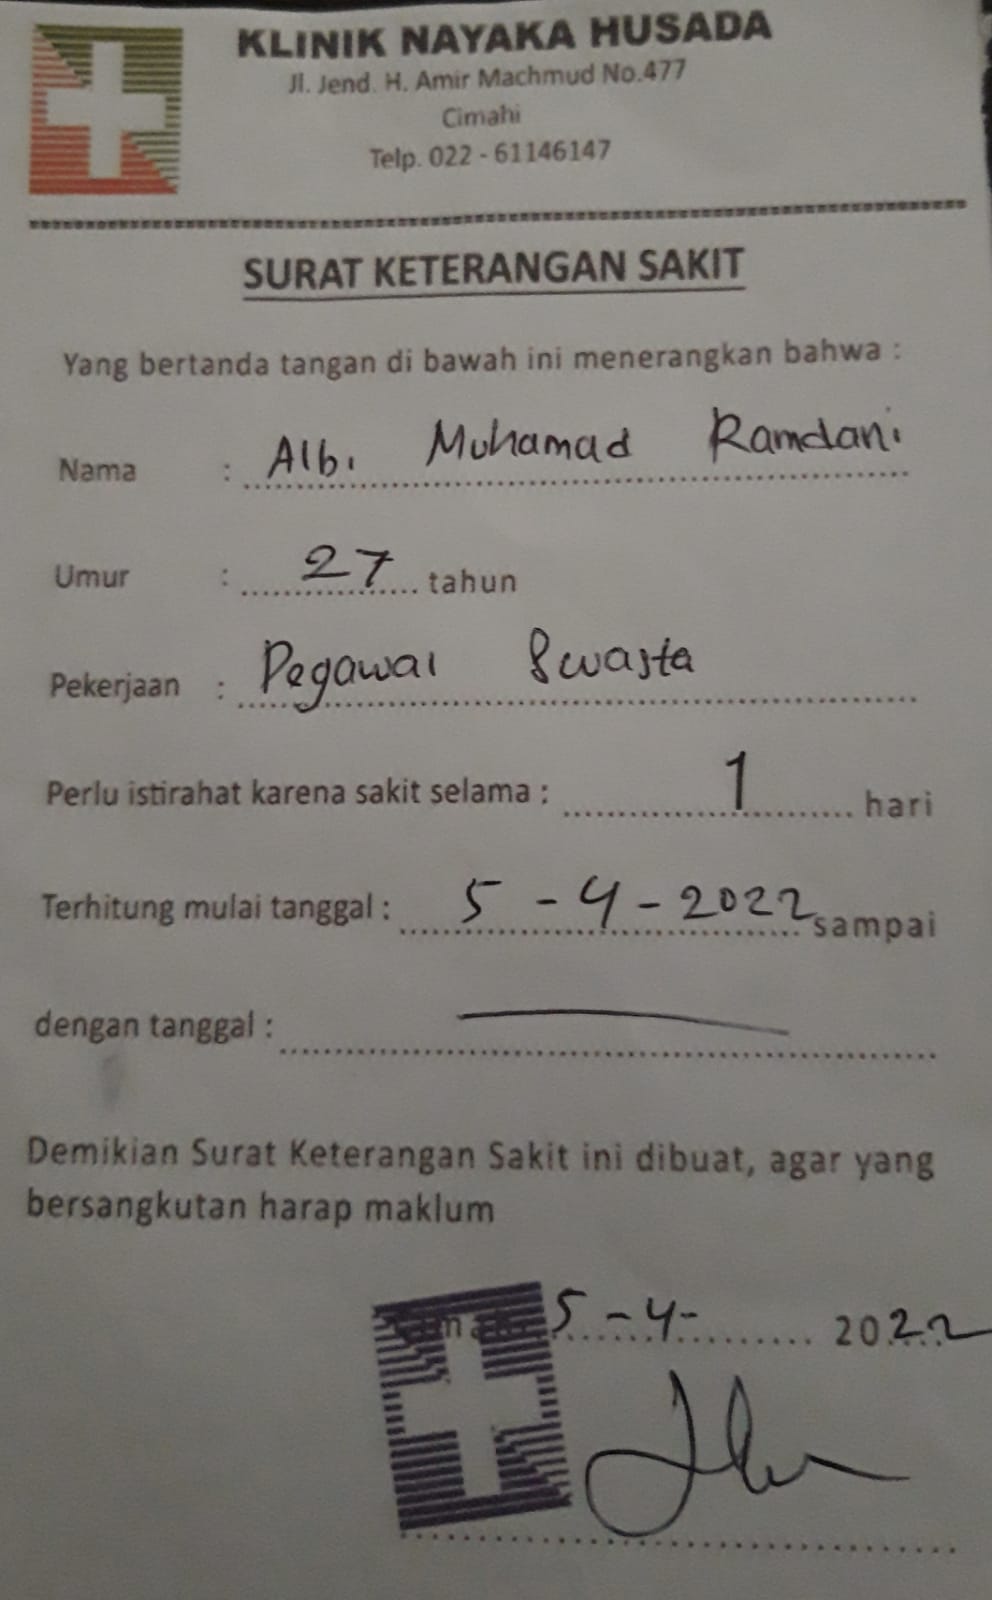 KLINIK NAYAKA HUSADA
Jl. Jend. H. Amir Machmud No.477
Cimahi
Telp. 022 - 61146147
SURAT KETERANGAN SAKIT
Yang bertanda tangan di bawah ini menerangkan bahwa :
Nama : Albi Muhamad Ramdani
Umur : 27 tahun
Pekerjaan : Pegawai Swasta
Perlu istirahat karena sakit selama : 1 hari
Terhitung mulai tanggal : 5 - 4 - 2022 sampai
dengan tanggal :
Demikian Surat Keterangan Sakit ini dibuat, agar yang
bersangkutan harap maklum
5 - 4 - 2022